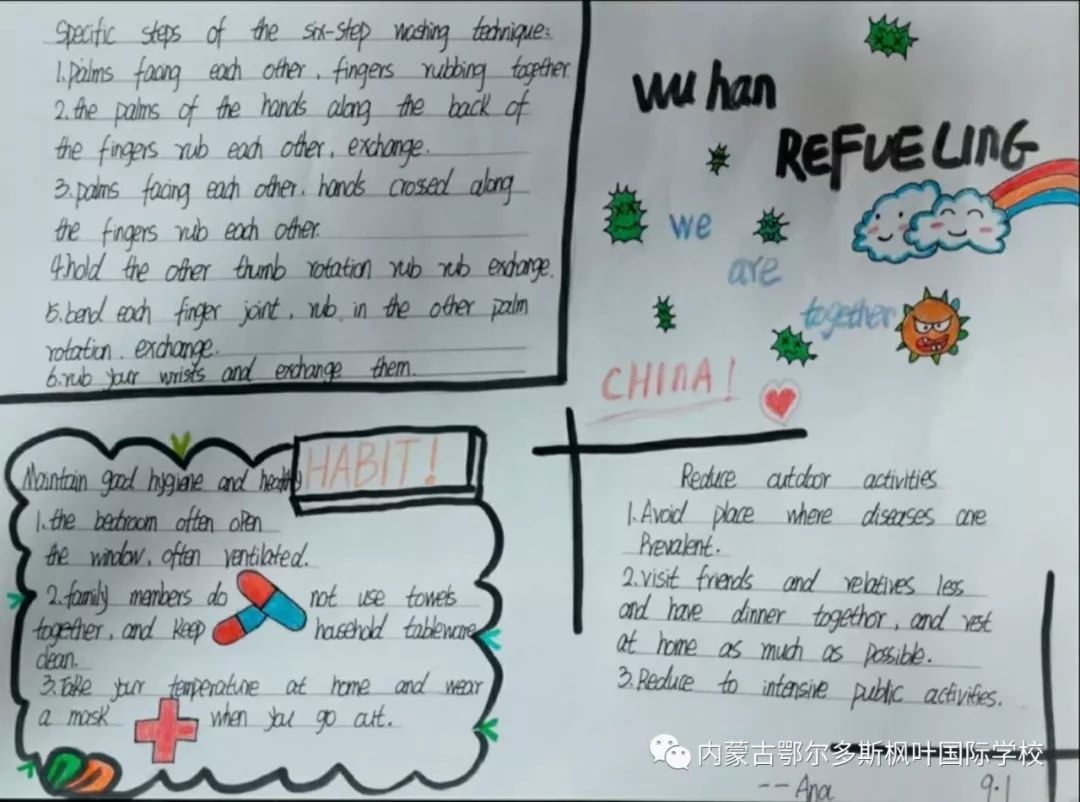 Specific steps of the six-step washing technique:
1.palms facing each other, fingers rubbing together.
2.the palms of the hands along the back of
the fingers rub each other, exchange.
3.palms facing each other, hands crossed along
the fingers rub each other.
4.hold the other thumb rotation rub rub exchange.
5.bend each finger joint, rub in the other palm
rotation, exchange.
6.rub your wrists and exchange them.
Wuhan
REFUELING
we
are
together
CHINA!
HABIT!
Maintain good hygiene and healthy
1.the bedroom often open
the window, often ventilated.
2.family members do not use towels
together, and keep household tableware
clean.
3.Take your temperature at home and wear
a mask when you go out.
Reduce outdoor activities
1.Avoid place where diseases are
Prevalent.
2.visit friends and relatives less
and have dinner togethor, and rest
at home as much as possible.
3.Reduce to intensive public activities.
内蒙古鄂尔多斯枫叶国际学校
--Ana 9.1